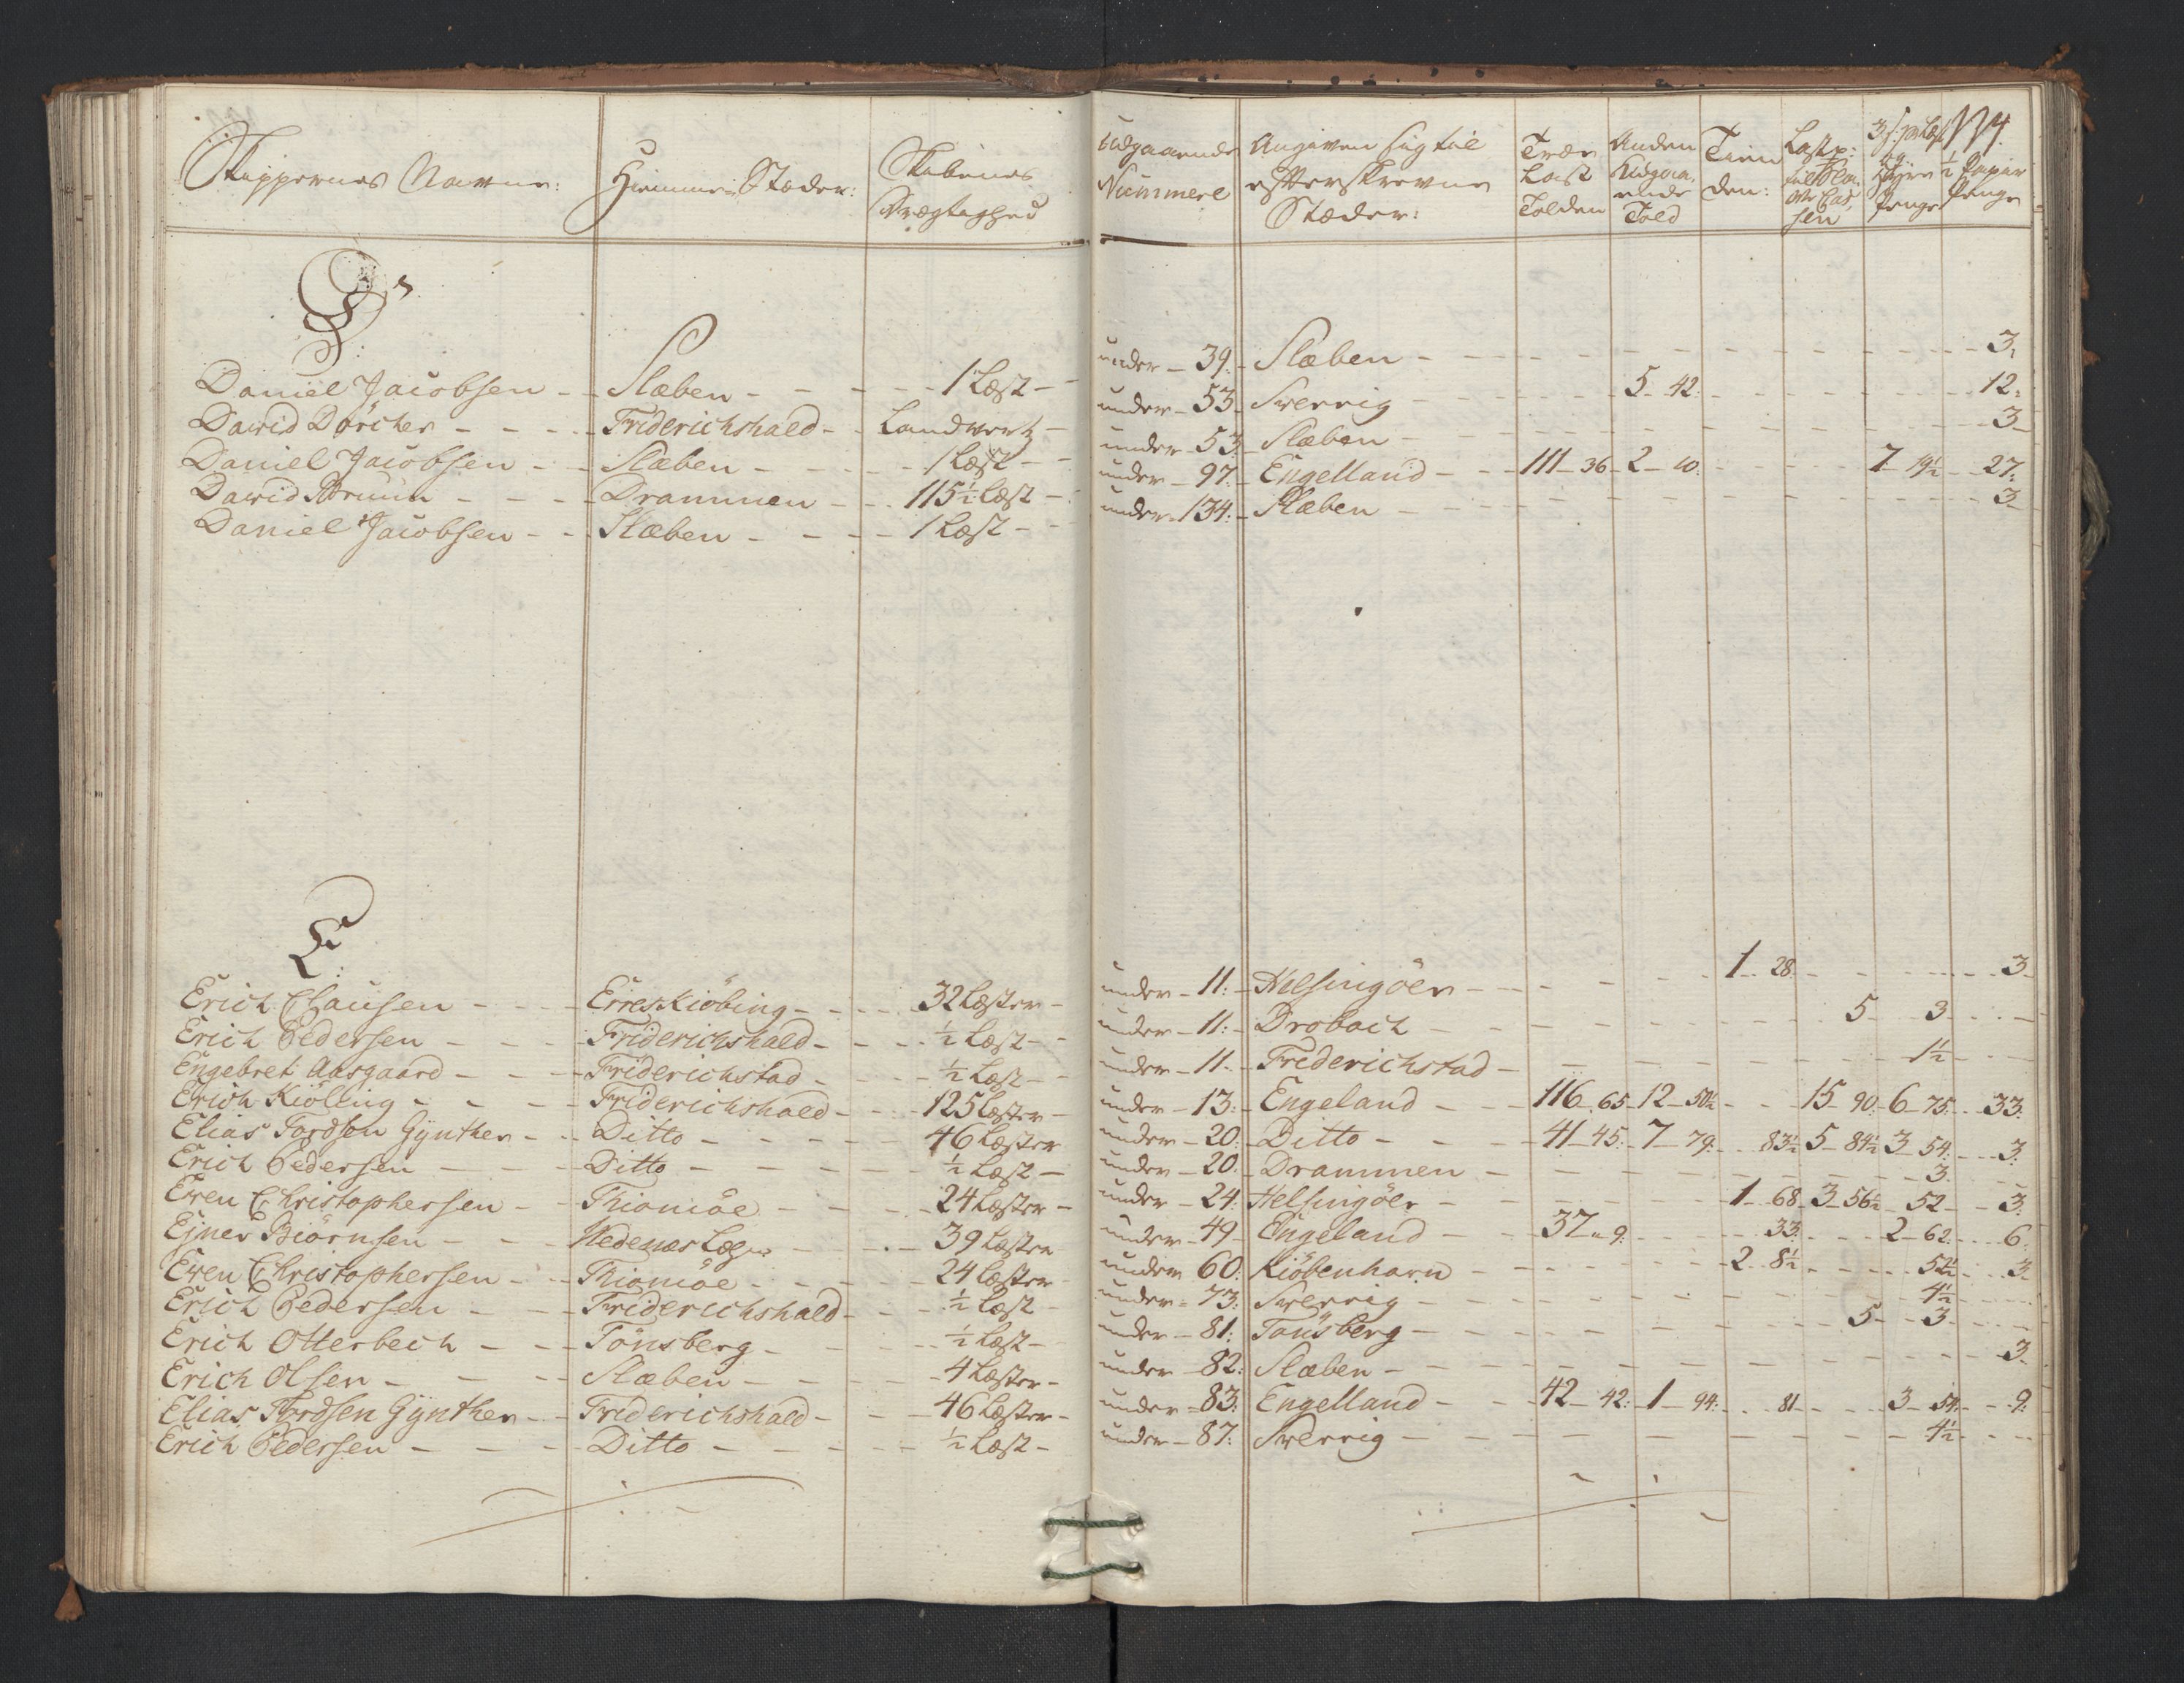 114
Skippernes Navne: Hiemme-Stæder: Skibenes Drægtighed Udgaaende Nummere Angiven sig til efterskrevne Stæder: Træe Last Tolden Anden Udgaaende Told Tienden: Lastp: Hÿre Penge ½ Papiir Penge
D:
Daniel Jacobsen - - Slæben - - - - 1 Læst - - under - 39. - Slæben - - - - 3.
David Dörcher - - - - Friderichshald - - Landverts - under - 53. - Sverrig - - - 5 - 42. - - - 12.
Daniel Jacobsen - - Slæben - - - - 1 Læst - - under - 53. - Slæben - - - - 3 -
David Bruun - - - Drammen - - - 115½ Læst - under - 97. - Engelland - - - 111 - 36 - 2 - 10. - - - 7 - 19½ - - 27.
Daniel Jacobsen - - Slæben - - - - 1 Læst - - under - 134. - Slæben - - - - 3 -
E:
Erich Clausen - - - Erreskiöbing - - - 32 Læster - under - 11. - Helsingöer - - - 1 - 28. - - - 3 -
Erich Pedersen - - - Friderichshald - - - ½ Læst - - under - 11. - Drobach - - - 5 - 3 - - -
Engebret Aasgaard - - - Friderichstad - - - ½ Læst - - under - 11 - - Frederichstad - - - 1½ - - -
Erich Kiölling - - - Friderichshald - - - 125 Læster - under - 13. - Engeland - - - 116 - 65 - 12 - 50½ - - - 15 - 90. - 6 - 75. - - 33.
Elias Tordsen Gÿnther - - Ditto - - - - 46 Læster under - 20. - Ditto - - - 41 - 45. - 7 - 79. - - 83½ - 5 - 84½ - 3 - 54. - - 3.
Erich Pedersen - - - Ditto - - - - ½ Læst - under - 20. - Drammen - - - 3. - -
Even Christophersen - - Thiomöe - - - - 24 Læster - under - 24. Helsingöer - - - 1 - 68 - 3 - 56½ - 52 - - 3.
Ejner Biörnsen - - - Nedenæs - - - 39 Læster under - 49 - Engeland - - 37 - 9. - - - 33. - - - 2 - 62. - - 6.
Even Christophersen - - Thiomöe - - - - 24 Læster - under 60. Kiöbenhavn - - - 2 - 8½ - - - 52½ - - 3.
Erich Pedersen - - - Friderichshald - - - ½ Læst under - 73. Sverrig - - - 4½ - -
Erich Otterbech - - - Tönsberg - - - - ½ Læst - under - 81. Tönsberg - - - 5 - 3 - - -
Erich Olsen - - - Slæben - - - - 4 Læster - under - 82. Slæben - - - 3 -
Elias Tordsen Gÿnther - - Friderichshald - - - 46 Læster - under - 83. Engelland - - - 42 - 42. - 1 - 94. - - 81 - - - 3 - 54. - - 9.
Erich Pedersen - - - Ditto - - - - ½ Læst - under - 87. Sverrig - - - 4½ - - -